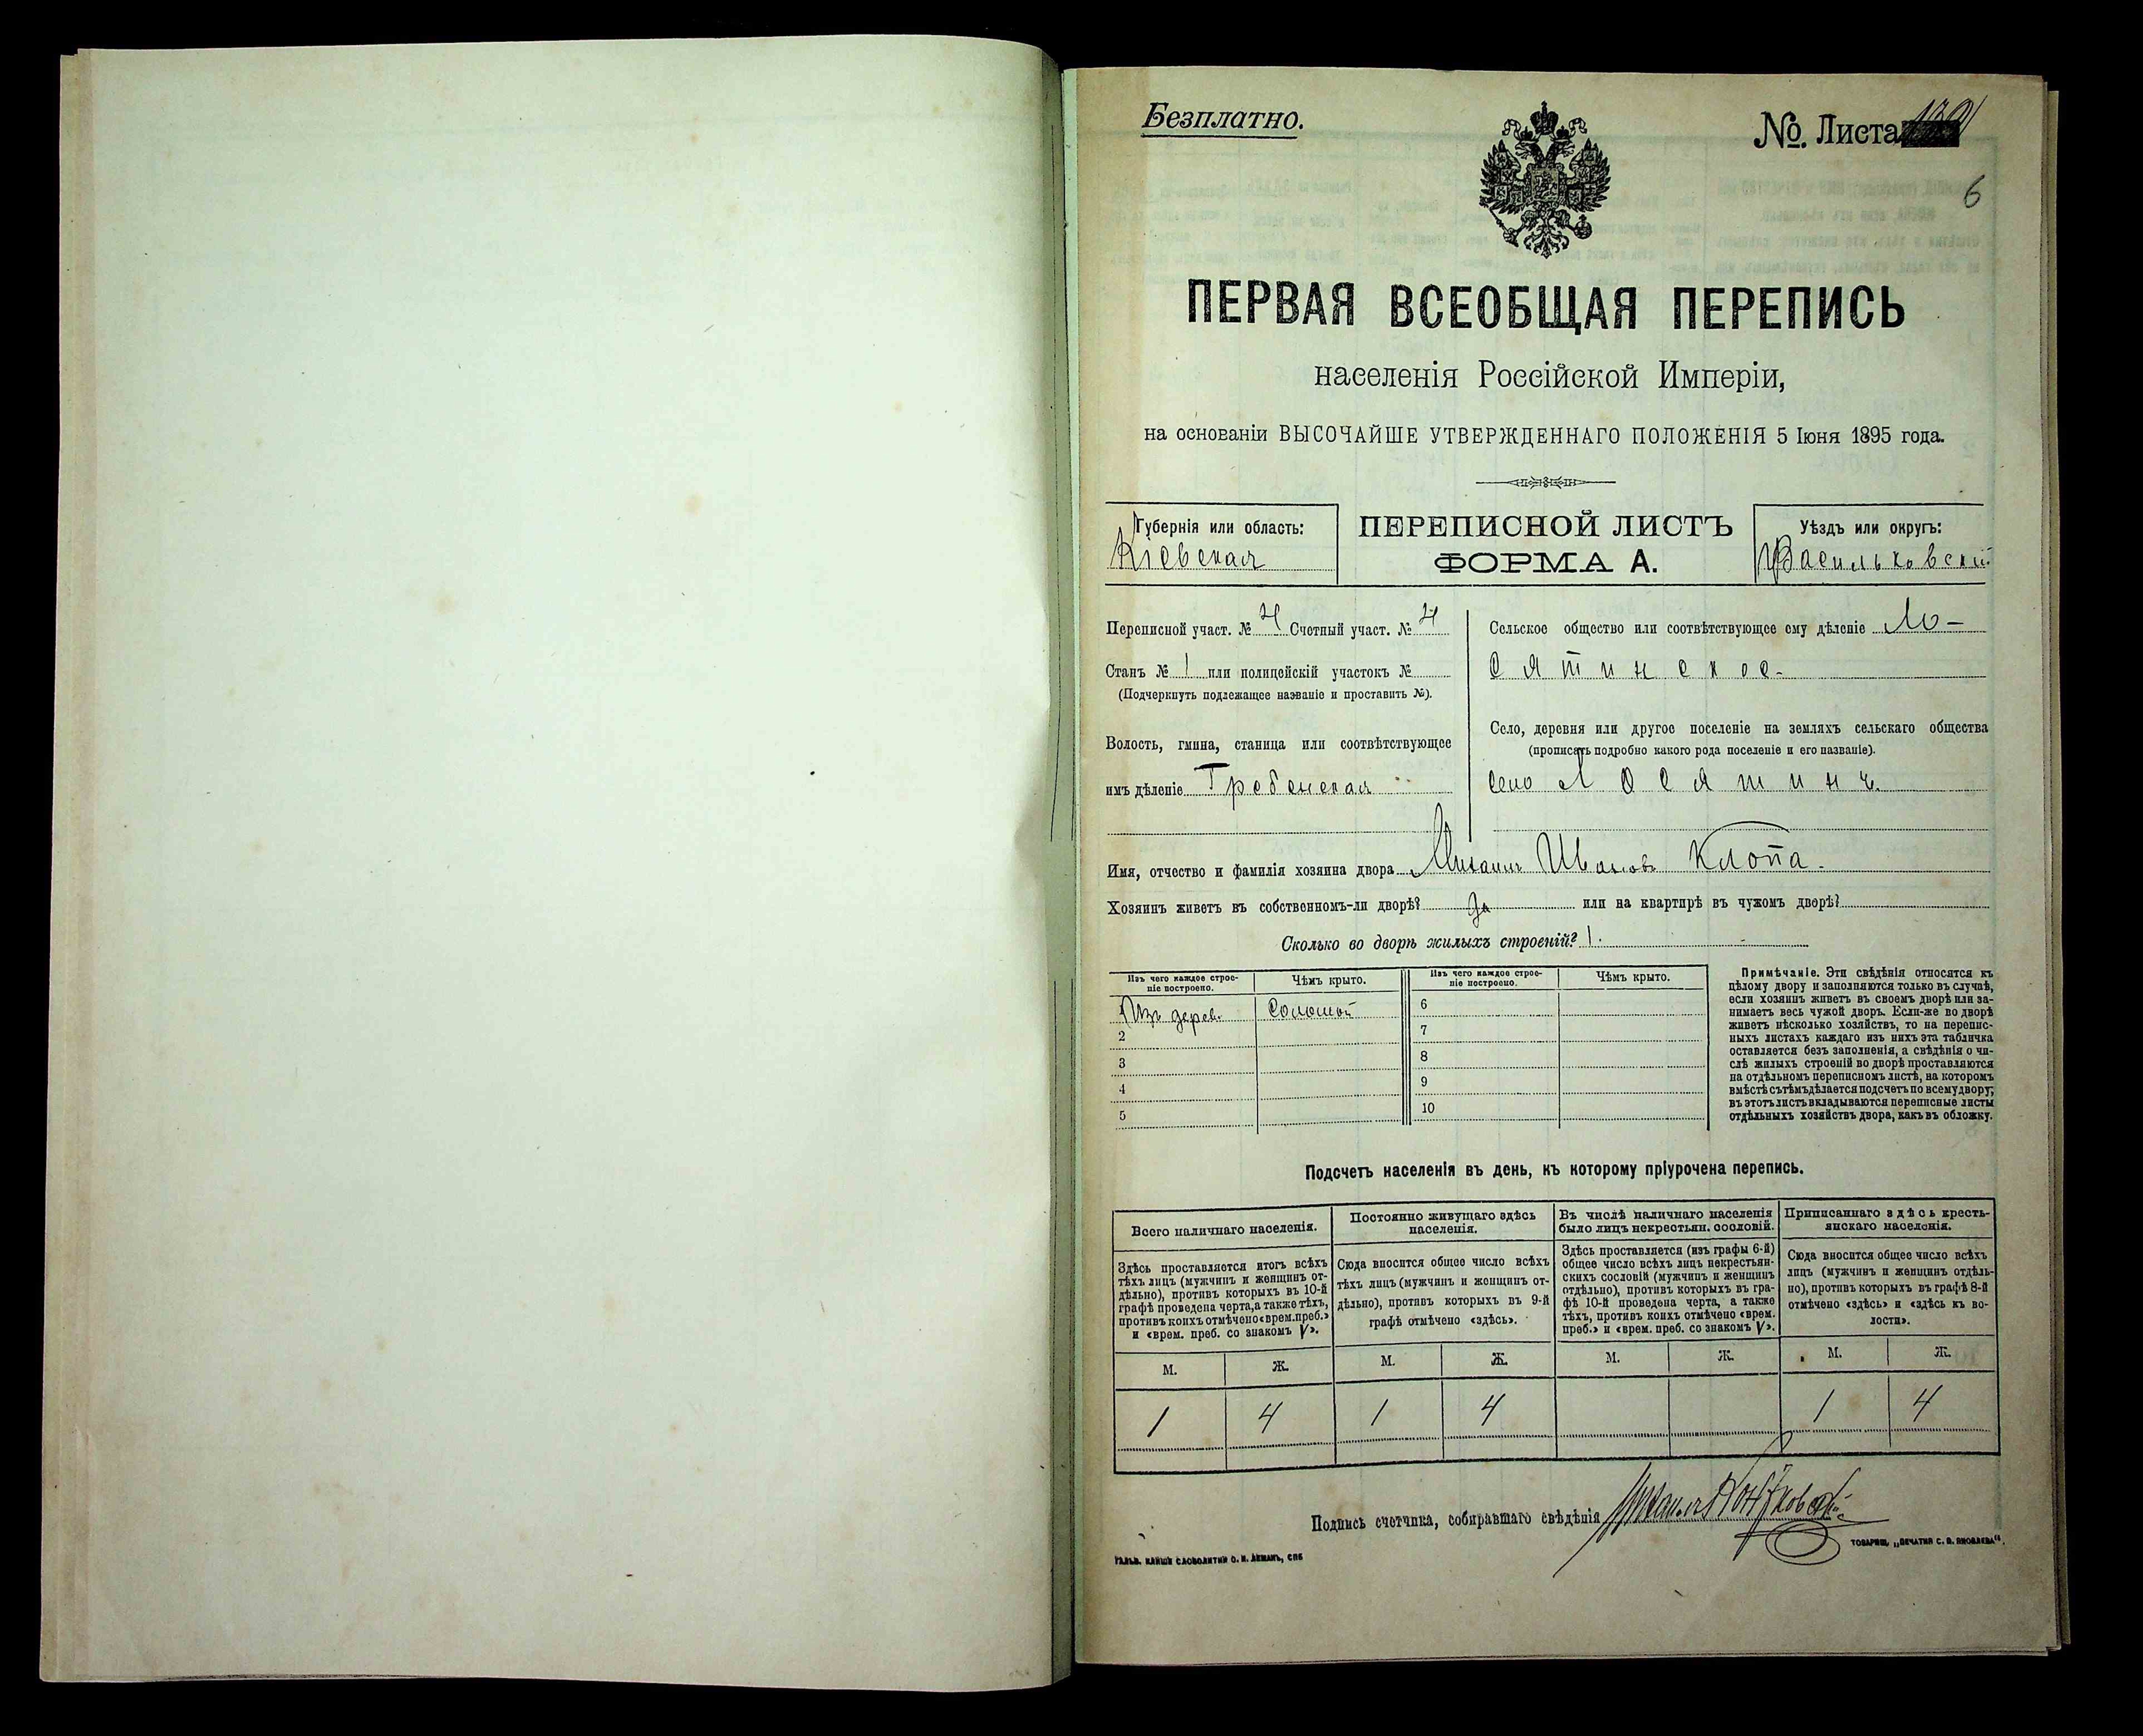 Безплатно.
№. Листа
6
ПЕРВАЯ ВСЕОБЩАЯ ПЕРЕПИСЬ
населенія Россійской Имперіи,
на основаніи ВЫСОЧАЙШЕ УТВЕРЖДЕННАГО ПОЛОЖЕНІЯ 5 Іюня 1895 года.
Губернія или область:
Кіевская
ПЕРЕПИСНОЙ ЛИСТЪ
ФОРМА А.
Уѣздъ или округъ:
Васильковскій
Переписной участ. № 4 Счетный участ. № 4
Станъ № 1 или полицейскій участокъ №
(Подчеркнуть подлежащее названіе и проставить №).
Волость, гмина, станица или соотвѣтствующее
имъ дѣленіе Гребенская
Сельское общество или соотвѣтствующее ему дѣленіе Ло-
сятинское.
Село, деревня или другое поселеніе на земляхъ сельскаго общества
(прописать подробно какого рода поселеніе и его названіе).
село Лосятинъ
Имя, отчество и фамилія хозяина двора Михаилъ Ивановъ Клопа.
Хозяинъ живетъ въ собственномъ-ли дворѣ? Да или на квартирѣ въ чужомъ дворѣ?
Сколько во дворѣ жилыхъ строеній? 1.
Изъ чего каждое строе-
ніе построено.
Чѣмъ крыто.
Изъ чего каждое строе-
ніе построено.
Чѣмъ крыто.
1 Изъ дерев. Соломой
2
3
4
5
6
7
8
9
10
Примѣчаніе. Эти свѣдѣнія относятся къ
цѣлому двору и заполняются только въ случаѣ,
если хозяинъ живетъ въ своемъ дворѣ или за-
нимаетъ весь чужой дворъ. Если-же во дворѣ
живетъ нѣсколько хозяйствъ, то на перепис-
ныхъ листахъ каждаго изъ нихъ эта табличка
оставляется безъ заполненія, а свѣдѣнія о чи-
слѣ жилыхъ строеній во дворѣ проставляются
на отдѣльномъ переписномъ листѣ, на которомъ
вмѣстѣ съ тѣмъ дѣлается подсчетъ по всему двору;
въ этотъ листъ вкладываются переписные листы
отдѣльныхъ хозяйствъ двора, какъ въ обложку.
Подсчетъ населенія въ день, къ которому пріурочена перепись.
Всего наличнаго населенія.
Здѣсь проставляется итогъ всѣхъ
тѣхъ лицъ (мужчинъ и женщинъ от-
дѣльно), противъ которыхъ въ 10-й
графѣ проведена черта, а также тѣхъ,
противъ коихъ отмѣчено «врем. преб.»
и «врем. преб. со знакомъ V».
Постоянно живущаго здѣсь
населенія.
Сюда вносится общее число всѣхъ
тѣхъ лицъ (мужчинъ и женщинъ от-
дѣльно), противъ которыхъ въ 9-й
графѣ отмѣчено «здѣсь».
Въ числѣ наличнаго населенія
было лицъ некрестьян. сословій.
Здѣсь проставляется (изъ графы 6-й)
общее число всѣхъ лицъ некрестьян-
скихъ сословій (мужчинъ и женщинъ
отдѣльно), противъ которыхъ въ гра-
фѣ 10-й проведена черта, а также
тѣхъ, противъ коихъ отмѣчено «врем.
преб.» и «врем. преб. со знакомъ V».
Приписаннаго здѣсь кресть-
янскаго населенія.
Сюда вносится общее число всѣхъ
лицъ (мужчинъ и женщинъ отдѣль-
но), противъ которыхъ въ графѣ 8-й
отмѣчено «здѣсь» и «здѣсь къ во-
лости».
М. Ж. М. Ж. М. Ж. М. Ж.
1 4 1 4 1 4
Подпись счетчика, собиравшаго свѣдѣнія
ГАЛЬВ. КЛИШЕ СЛОВОЛИТНИ О. И. ЛЕМАНЪ, СПБ
ТОВАРИЩ. „ПЕЧАТНЯ С. П. ЯКОВЛЕВА“.